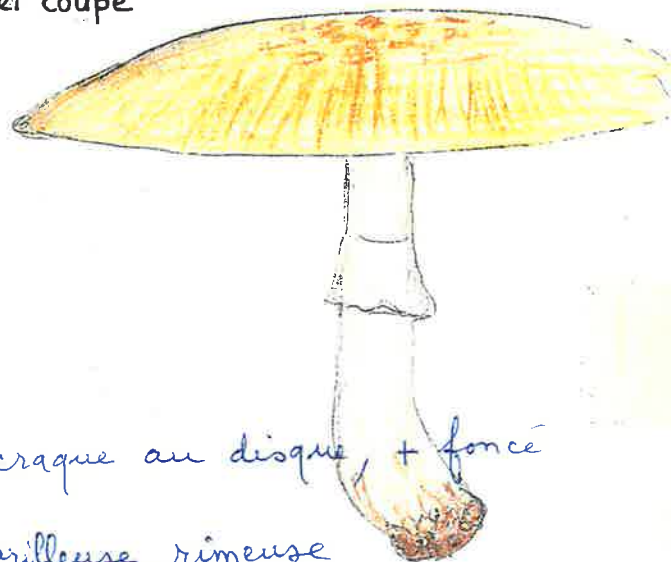 et coupe
craque au disque, + foncé
rimeuse